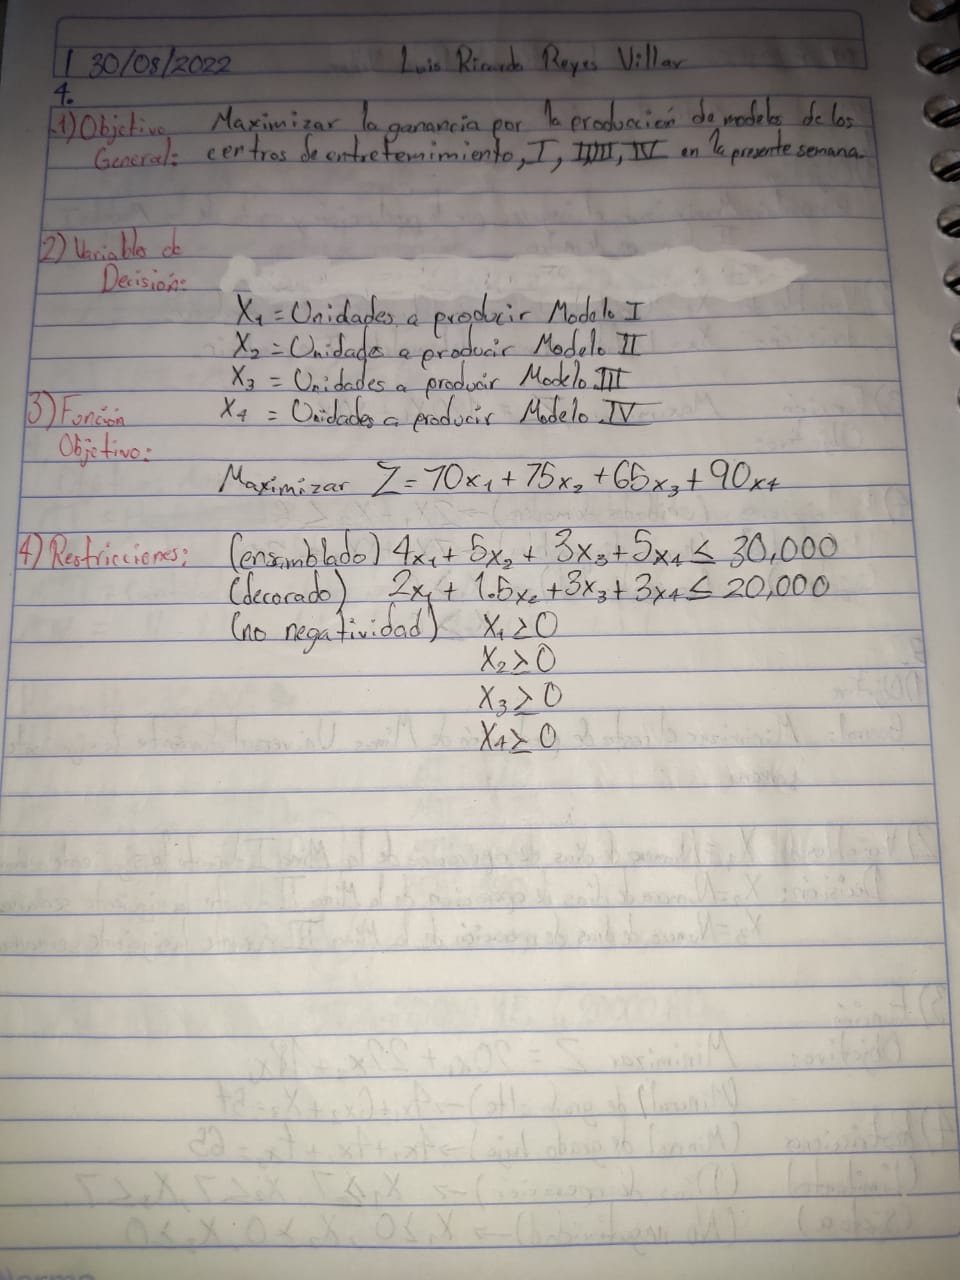 1 30/08/2022 Luis Ricardo Reyes Villar
4.
1) Objetivo Maximizar la ganancia por la producción de modelos de los
General: centros de entretenimiento, I, II, III, IV en la presente semana.
2) Variables de
Decisión:
X₁ = Unidades a producir Modelo I
X₂ = Unidades a producir Modelo II
X₃ = Unidades a producir Modelo III
3) Función X₄ = Unidades a producir Modelo IV
Objetivo:
Maximizar Z = 70x₁ + 75x₂ + 65x₃ + 90x₄
4) Restricciones: (ensamblado) 4x₁ + 5x₂ + 3x₃ + 5x₄ ≤ 30,000
(decorado) 2x₁ + 1.5x₂ + 3x₃ + 3x₄ ≤ 20,000
(no negatividad) X₁ ≥ 0
X₂ ≥ 0
X₃ ≥ 0
X₄ ≥ 0